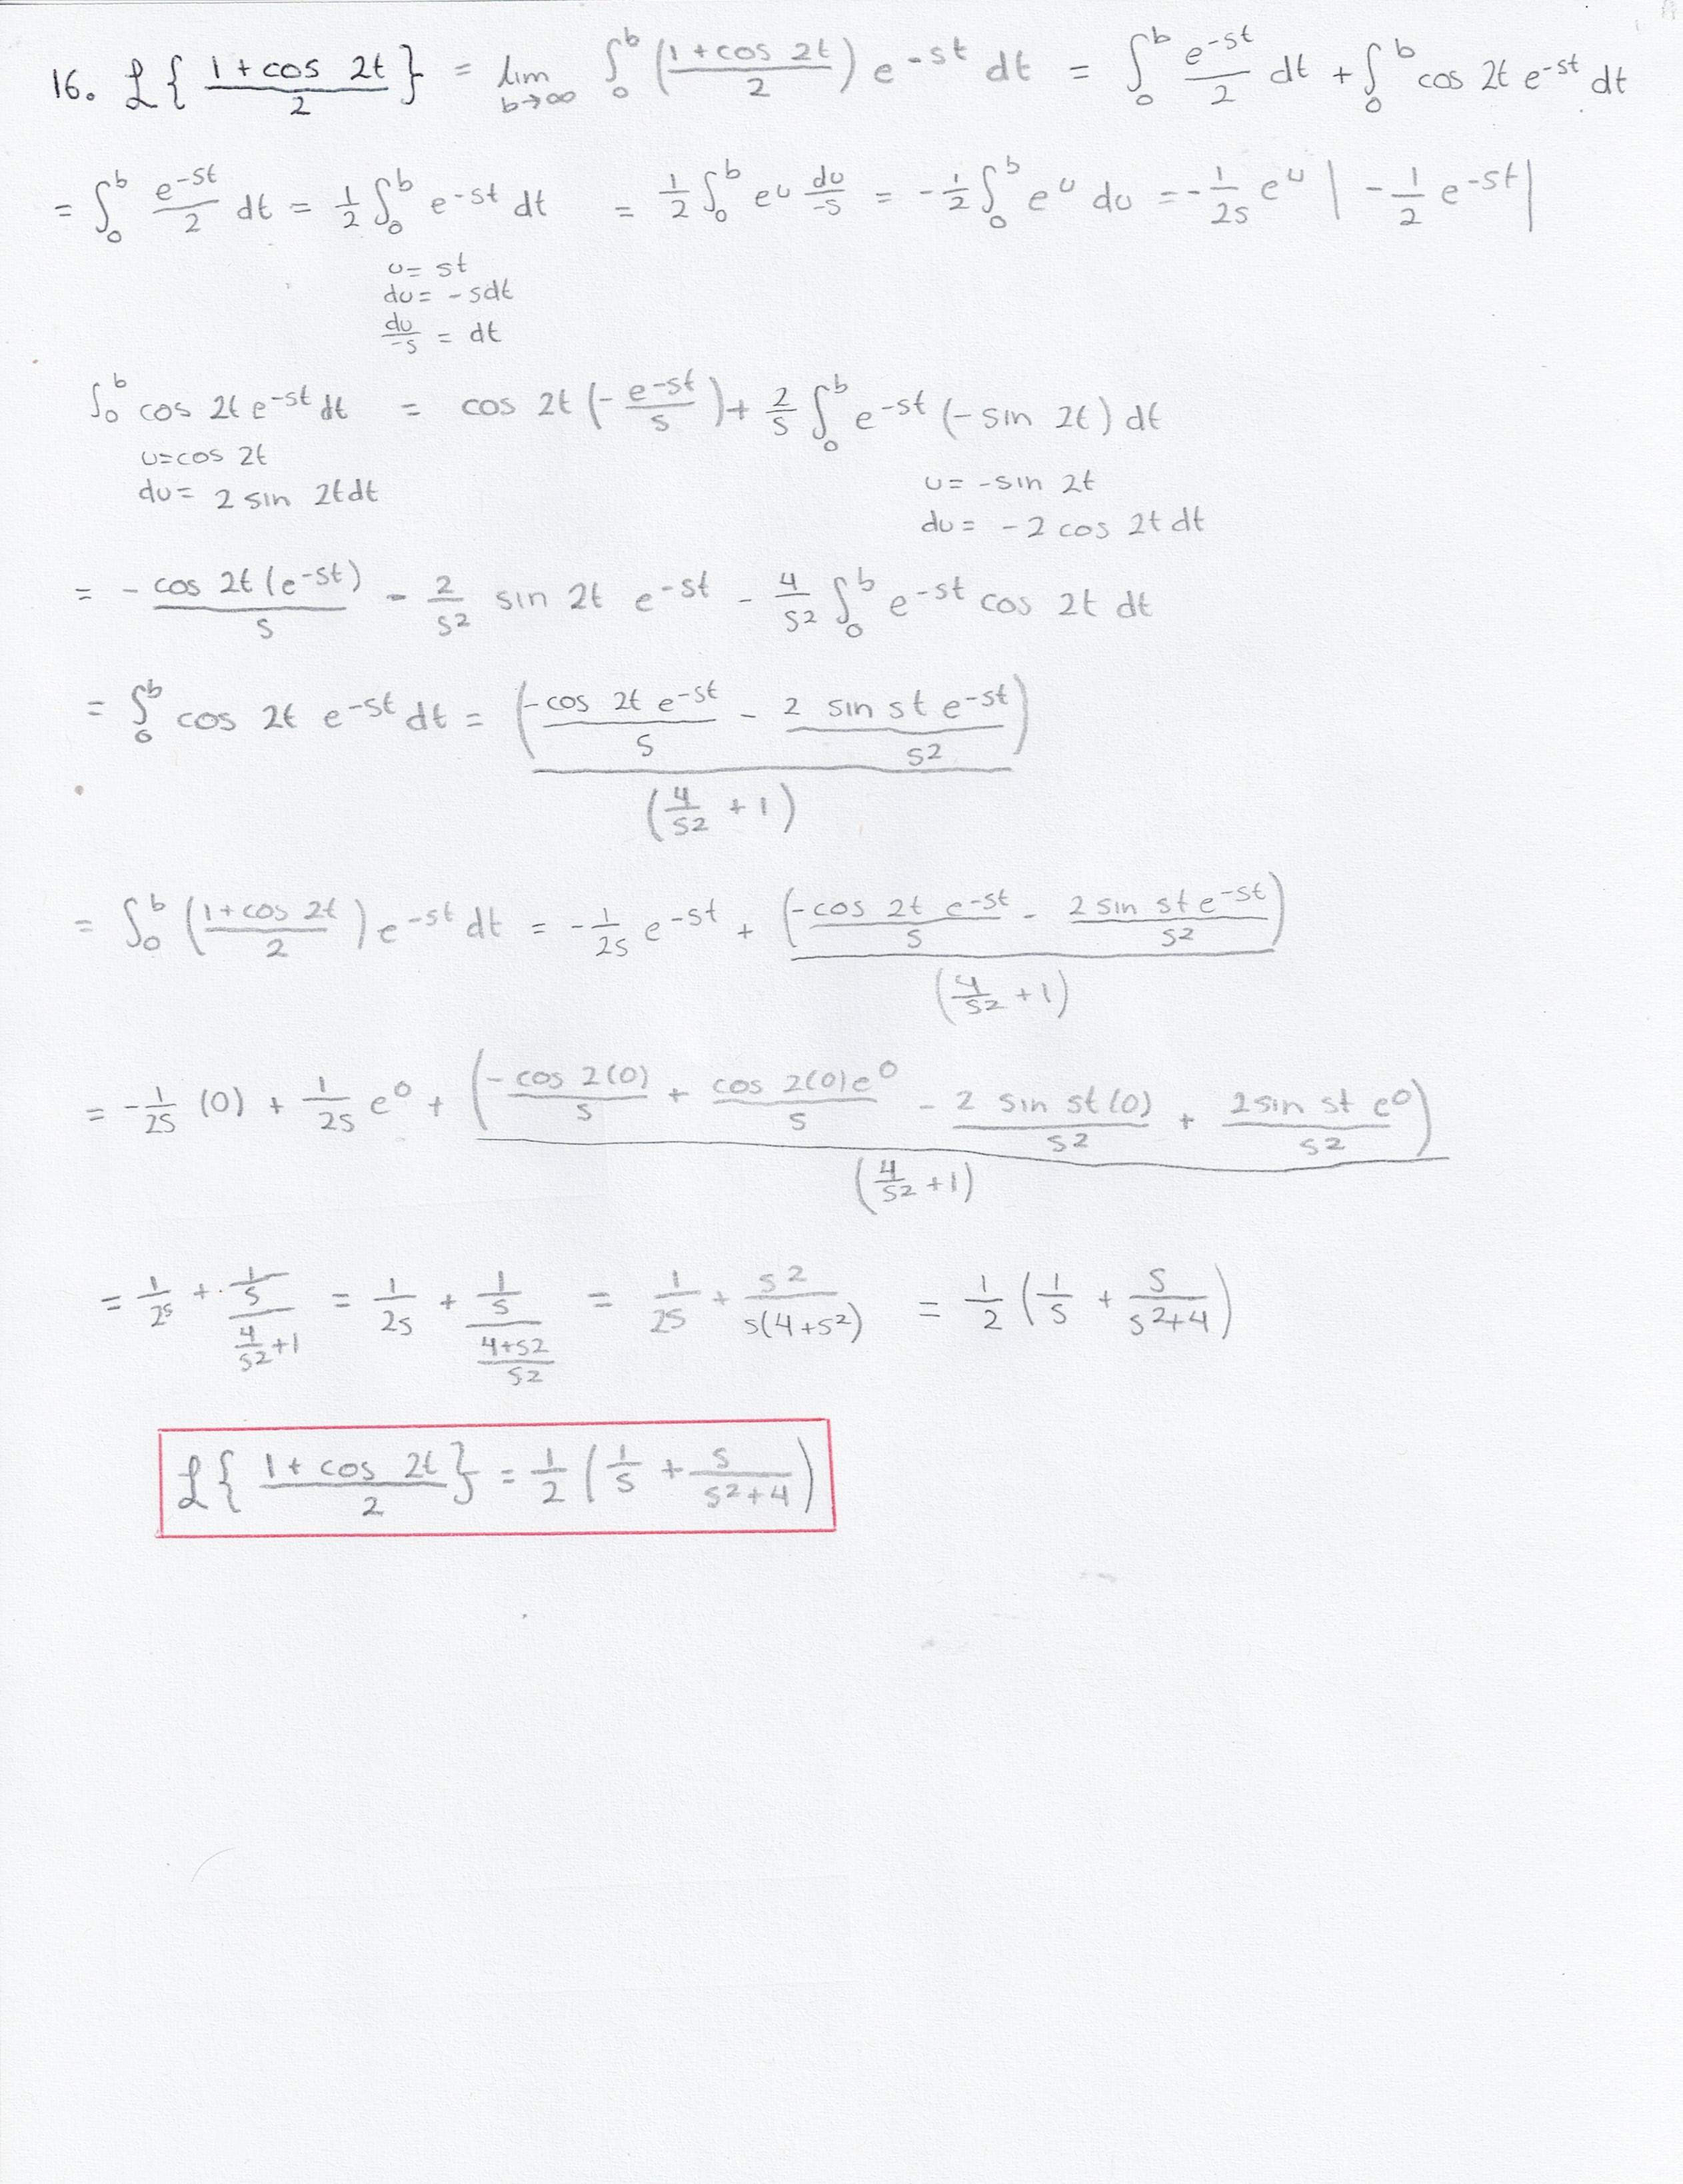 16. ℒ{ (1+cos 2t)/2 } = lim b→∞ ∫₀ᵇ ((1+cos 2t)/2) e^-st dt = ∫₀ᵇ e^-st/2 dt + ∫₀ᵇ cos 2t e^-st dt
= ∫₀ᵇ e^-st/2 dt = 1/2 ∫₀ᵇ e^-st dt = 1/2 ∫₀ᵇ e^u du/-s = -1/2 ∫₀ᵇ e^u du = -1/2s e^u | -1/2 e^-st |
u= st
du= -sdt
du/-s = dt
∫₀ᵇ cos 2t e^-st dt = cos 2t (- e^-st/s) + 2/s ∫₀ᵇ e^-st (- sin 2t) dt
u=cos 2t
du= 2 sin 2tdt
u= -sin 2t
du= -2 cos 2t dt
= - cos 2t (e^-st)/s - 2/s² sin 2t e^-st - 4/s² ∫₀ᵇ e^-st cos 2t dt
= ∫₀ᵇ cos 2t e^-st dt = (-cos 2t e^-st/s - 2 sin st e^-st/s²)/(4/s² + 1)
= ∫₀ᵇ ((1+cos 2t)/2) e^-st dt = -1/2s e^-st + (-cos 2t e^-st/s - 2 sin st e^-st/s²)/(4/s² + 1)
= -1/2s (0) + 1/2s e⁰ + (-cos 2(0)/s + cos 2(0)e⁰/s - 2 sin st(0)/s² + 2sin st e⁰/s²)/(4/s² +1)
= 1/2s + (1/s)/(4/s²+1) = 1/2s + (1/s)/((4+s²)/s²) = 1/2s + s²/s(4+s²) = 1/2 (1/s + s/(s²+4))
ℒ{ (1+cos 2t)/2 } = 1/2 (1/s + s/(s²+4))